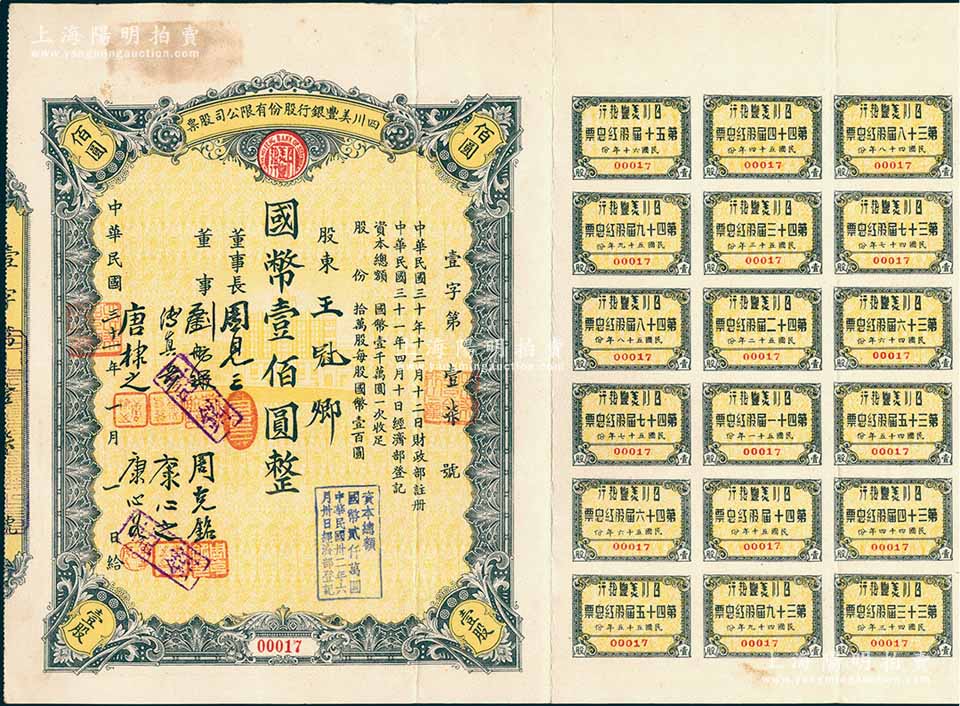 上海陽明拍賣
www.yangmingauction.com
四川美豐銀行股份有限公司股票
佰圓
佰圓
壹字第壹柒號
中華民國三十年十二月十二日財政部註册
中華民國三十一年四月十日經濟部登記
資本總額 國幣壹千萬圓一次收足
股份 拾萬股每股國幣壹百圓
股東 王冠卿
國幣壹佰圓整
董事長 周見三
董事
周克銘
康心之
唐棣之
康心
中華民國三十二年十一月一日給
資本總額
國幣貳仟萬圓
中華民國卅二年六
月卅日經濟部登記
壹股
壹股
00017
四川美豐銀行
第五十届股紅息票
民國六十年份
00017
壹股
四川美豐銀行
第四十四届股紅息票
民國五十四年份
00017
壹股
四川美豐銀行
第三十八届股紅息票
民國四十八年份
00017
壹股
四川美豐銀行
第四十九届股紅息票
民國五十九年份
00017
壹股
四川美豐銀行
第四十三届股紅息票
民國五十三年份
00017
壹股
四川美豐銀行
第三十七届股紅息票
民國四十七年份
00017
壹股
四川美豐銀行
第四十八届股紅息票
民國五十八年份
00017
壹股
四川美豐銀行
第四十二届股紅息票
民國五十二年份
00017
壹股
四川美豐銀行
第三十六届股紅息票
民國四十六年份
00017
壹股
四川美豐銀行
第四十七届股紅息票
民國五十七年份
00017
壹股
四川美豐銀行
第四十一届股紅息票
民國五十一年份
00017
壹股
四川美豐銀行
第三十五届股紅息票
民國四十五年份
00017
壹股
四川美豐銀行
第四十六届股紅息票
民國五十六年份
00017
壹股
四川美豐銀行
第四十届股紅息票
民國五十年份
00017
壹股
四川美豐銀行
第三十四届股紅息票
民國四十四年份
00017
壹股
四川美豐銀行
第四十五届股紅息票
民國五十五年份
00017
壹股
四川美豐銀行
第三十九届股紅息票
民國四十九年份
00017
壹股
四川美豐銀行
第三十三届股紅息票
民國四十三年份
00017
壹股
上海陽明拍賣
www.yangmingauction.com